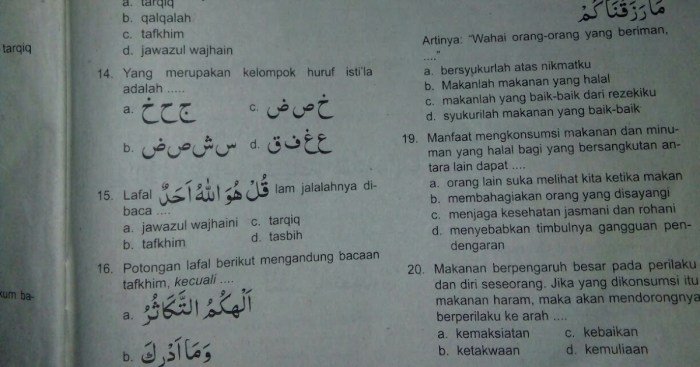 tarqiq
kum ba-
a. tarqiq
b. qalqalah
c. tafkhim
d. jawazul wajhain
14. Yang merupakan kelompok huruf isti'la
adalah .....
a. ج ح خ c. خ ص ض
b. س ش ص ض d. ع غ ف ق
15. Lafal قُلْ هُوَ اللّٰهُ اَحَدٌ lam jalalahnya di-
baca ....
a. jawazul wajhaini c. tarqiq
b. tafkhim d. tasbih
16. Potongan lafal berikut mengandung bacaan
tafkhim, kecuali ....
a. اَلْهٰكُمُ التَّكَاثُرُ
b. وَمَا اَدْرٰكَ
مَا رَزَقْنَاكُمْ
Artinya: "Wahai orang-orang yang beriman,
...."
a. bersyukurlah atas nikmatku
b. Makanlah makanan yang halal
c. makanlah yang baik-baik dari rezekiku
d. syukurilah makanan yang baik-baik
19. Manfaat mengkonsumsi makanan dan minu-
man yang halal bagi yang bersangkutan an-
tara lain dapat ....
a. orang lain suka melihat kita ketika makan
b. membahagiakan orang yang disayangi
c. menjaga kesehatan jasmani dan rohani
d. menyebabkan timbulnya gangguan pen-
dengaran
20. Makanan berpengaruh besar pada perilaku
dan diri seseorang. Jika yang dikonsumsi itu
makanan haram, maka akan mendorongnya
berperilaku ke arah ....
a. kemaksiatan c. kebaikan
b. ketakwaan d. kemuliaan